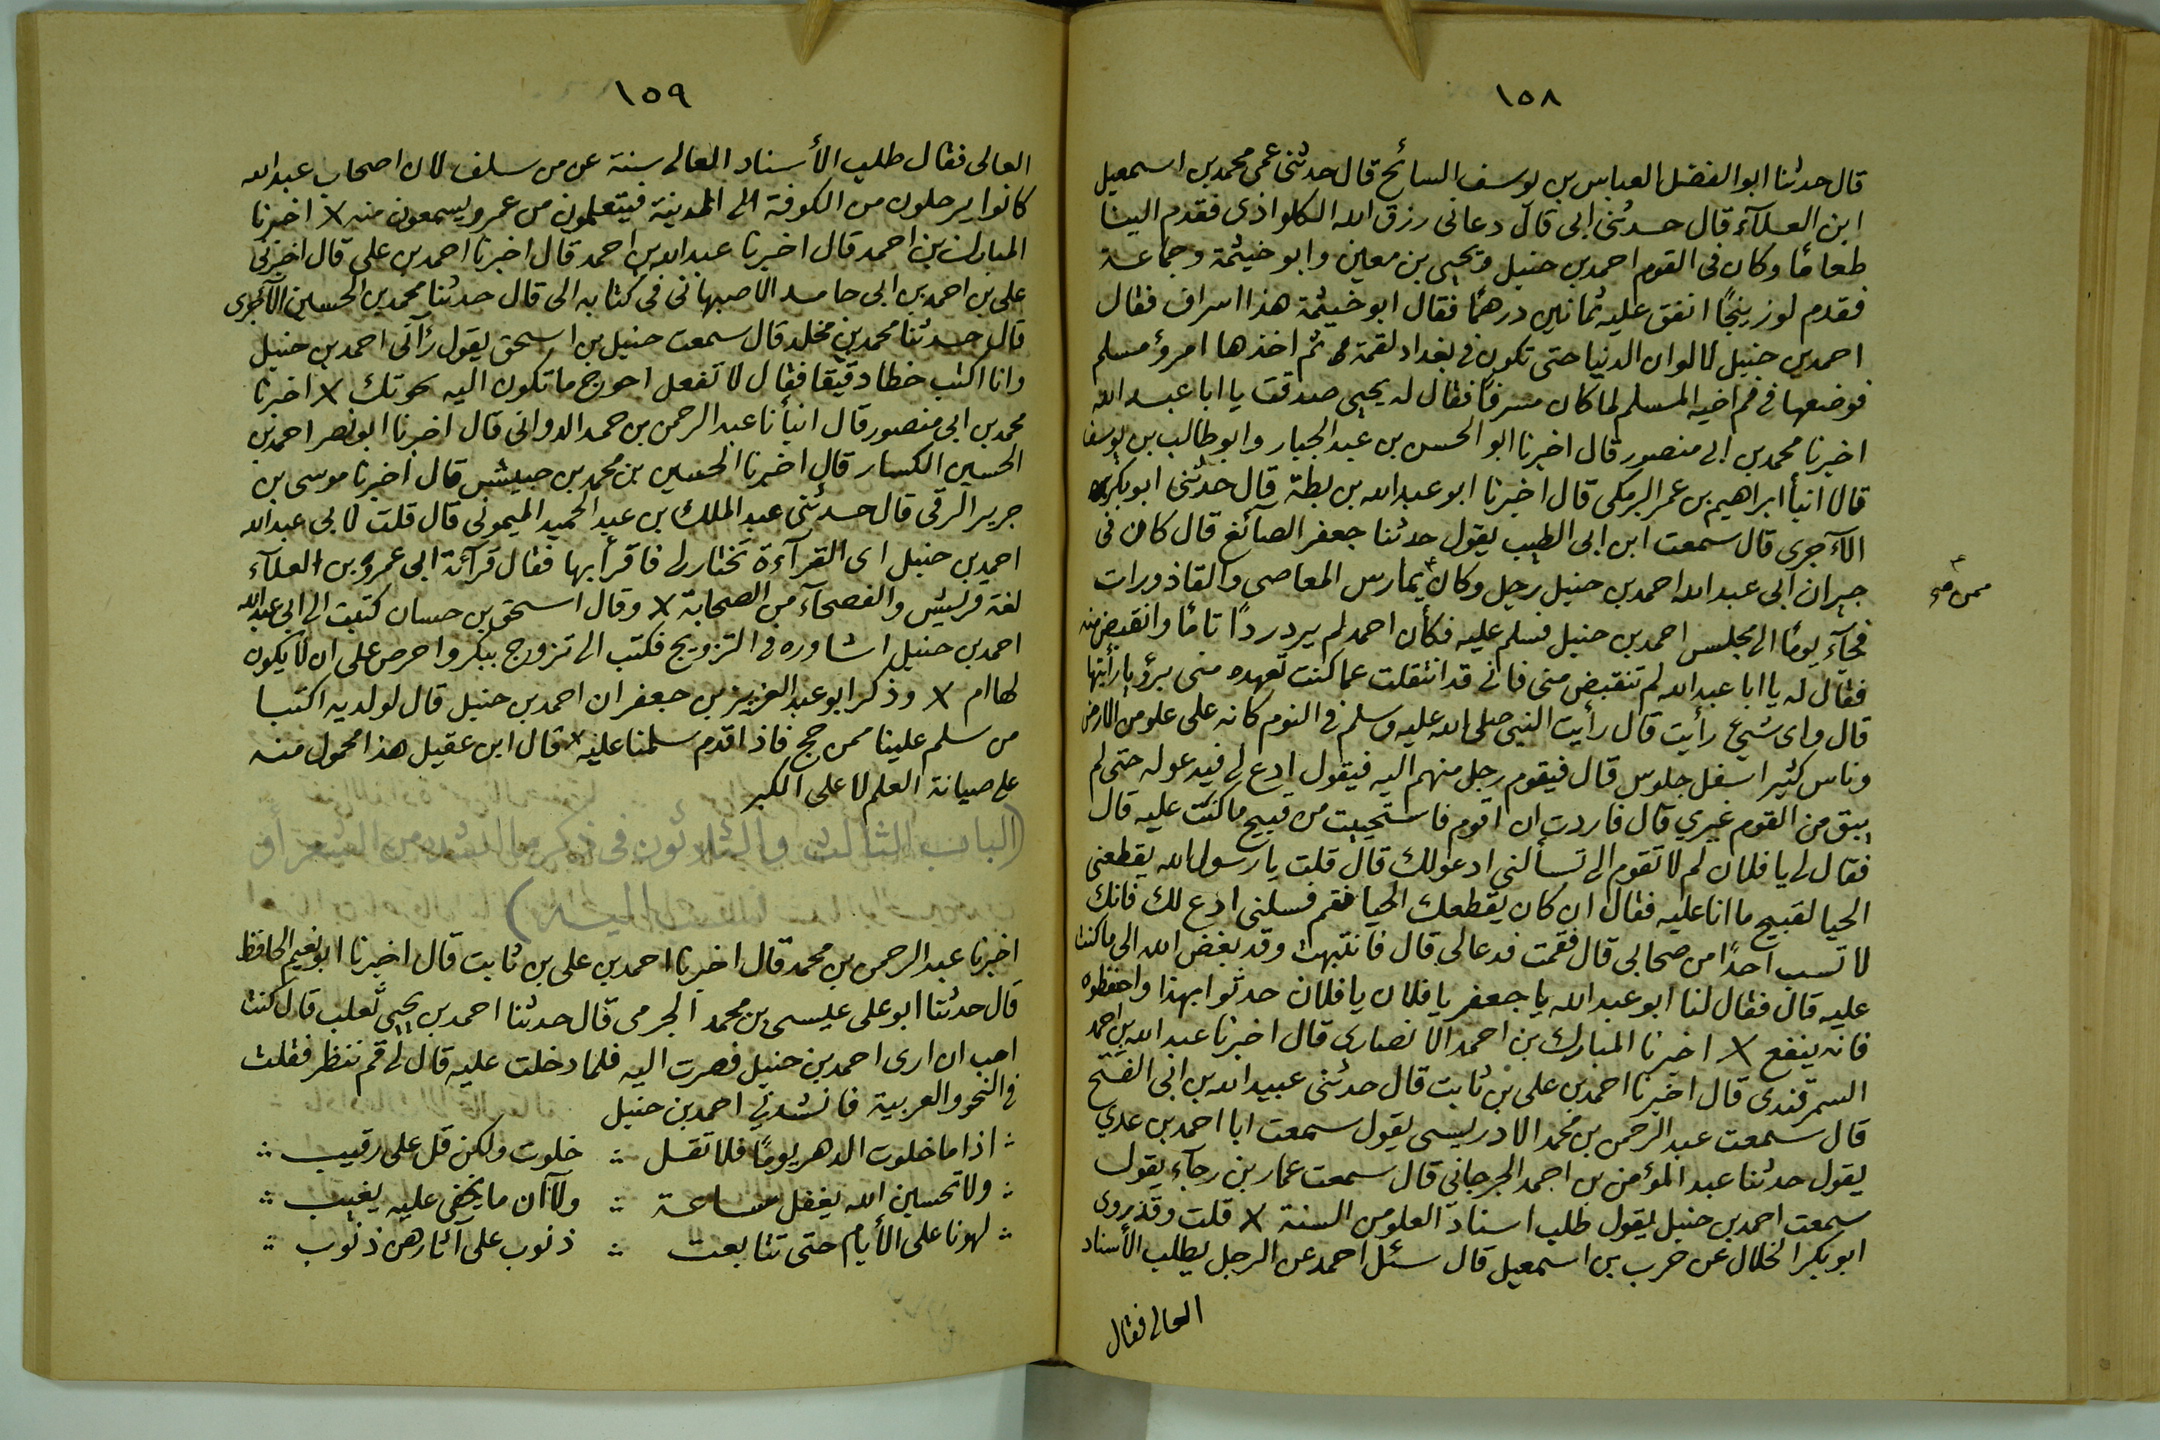 ١٥٨
قال حدثنا ابو الفضل العباس بن يوسف السائح قال حدثنى عمى محمد بن اسمعيل
ابن العلآء قال حدثنى ابى قال دعانى رزق الله الكلواذى فقدم الينا
طعامًا وكان فى القوم احمد بن حنبل ويحيى بن معين وابو خيثمة وجماعة
فقدم لوزينجًا انفق عليه ثمانين درهمًا فقال ابو خيثمة هذا اسراف فقال
احمد بن حنبل لا لوان الدنيا حتى تكون فى بغداد لقمة ثم اخذها امرؤ مسلم
فوضعها فى فم اخيه المسلم لما كان مسرفًا فقال له يحيى صدقت يا ابا عبد الله
اخبرنا محمد بن ابى منصور قال اخبرنا ابو الحسن بن عبد الجبار وابو طالب بن يوسف
قالا انبأ ابراهيم بن عمر البرمكى قال اخبرنا ابو عبد الله بن بطة قال حدثنى ابو بكر
الآجرى قال سمعت ابن ابى الطيب يقول حدثنا جعفر الصآئغ قال كان فى
جيران ابى عبد الله احمد بن حنبل رجل وكان يمارس المعاصى والقاذورات
ممن
فجآء يومًا الى مجلس احمد بن حنبل فسلم عليه فكأن احمد لم يرد ردًا تامًا وانقبض منه
فقال له يا ابا عبد الله لم تنقبض منى فانى قد انتقلت عما كنت تعهده منى برؤيا رأيتها
قال واى شيئ رأيت قال رأيت النبى صلى الله عليه وسلم فى النوم كانه على علو من الارض
وناس كثير اسفل جلوس قال فيقوم رجل منهم اليه فيقول ادع لى فيدعو له حتى لم
يبق من القوم غيري قال فاردت ان اقوم فاستحييت من قبيح ما كنت عليه قال
فقال لى يا فلان لم لا تقوم الى تسألنى ادعو لك قال قلت يا رسول الله يقطعنى
الحيا لقبيح ما انا عليه فقال ان كان يقطعك الحيا فقم فسلنى ادع لك فانك
لا تسب احدًا من صحابى قال فقمت فدعا لى قال فانتبهت وقد بغض الله الى ما كنت
عليه قال فقال لنا ابو عبد الله يا جعفر يا فلان يا فلان حدثوا بهذا واحفظوه
فانه ينفع X اخبرنا المبارك بن احمد الانصارى قال اخبرنا عبد الله بن احمد
السمرقندى قال اخبرنا احمد بن على بن ثابت قال حدثنى عبيد الله بن ابى الفتح
قال سمعت عبد الرحمن بن محمد الادريسى يقول سمعت ابا احمد بن عدي
يقول حدثنا عبد المؤمن بن احمد الجرجانى قال سمعت عمار بن رجآء يقول
سمعت احمد بن حنبل يقول طلب اسناد العلو من السنة X قلت وقد روى
ابو بكر الخلال عن حرب بن اسمعيل قال سئل احمد عن الرجل يطلب الأسناد
العالى فقال
١٥٩
العالى فقال طلب الأسناد العالى سنة عن من سلف لان اصحاب عبد الله
كانوا يرحلون من الكوفة الى المدينة فيتعلمون من عمر ويسمعون منه X اخبرنا
المبارك بن احمد قال اخبرنا عبد الله بن احمد قال اخبرنا احمد بن على قال اخبرنى
على بن احمد بن ابى حامد الاصبهانى فى كتابه الى قال حدثنا محمد بن الحسين الآجرى
قال حدثنا محمد بن مخلد قال سمعت حنبل بن اسحق يقول رآنى احمد بن حنبل
وانا اكتب خطا دقيقا فقال لا تفعل احوج ما تكون اليه يخونك X اخبرنا
محمد بن ابى منصور قال انبأنا عبد الرحمن بن حمد الدوانى قال اخبرنا ابو نصر احمد بن
الحسين الكسار قال اخبرنا الحسين بن محمد بن حبيش قال اخبرنا موسى بن
جرير الرقى قال حدثنى عبد الملك بن عبد الحميد الميمونى قال قلت لابى عبد الله
احمد بن حنبل اى القرآءة تختار لى فاقرأ بها فقال قرآئة ابى عمرو بن العلآء
لغة قريش والفصحآء من الصحابة X وقال اسحق بن حسان كتبت الى ابى عبد الله
احمد بن حنبل اشاوره فى التزويج فكتب الى تزوج ببكر واحرص على ان لا يكون
لها ام X وذكر ابو عبد العزيز بن جعفر ان احمد بن حنبل قال لولديه اكتبا
من سلم علينا ممن حج فاذا قدم سلمنا عليه X قال ابن عقيل هذا محمول منه
على صيانة العلم لا على الكبر
(الباب الثالث والثلاثون فى ذكر ما انشده من الشعر أو
نسب اليه)
اخبرنا عبد الرحمن بن محمد قال اخبرنا احمد بن على بن ثابت قال اخبرنا ابو نعيم الحافظ
قال حدثنا ابو على عيسى بن محمد الجرمى قال حدثنا احمد بن يحيى ثعلب قال كنت
احب ان ارى احمد بن حنبل فصرت اليه فلما دخلت عليه قال لى قم تنظر فقلت
فى النحو والعربية فانشدنى احمد بن حنبل
اذا ما خلوت الدهر يومًا فلا تقل ∴ خلوت ولكن قل على رقيب
ولا تحسبن الله يغفل ساعة ∴ ولا أن ما يخفى عليه يغيب
لهونا على الأيام حتى تتابعت ∴ ذنوب على آثارهن ذنوب